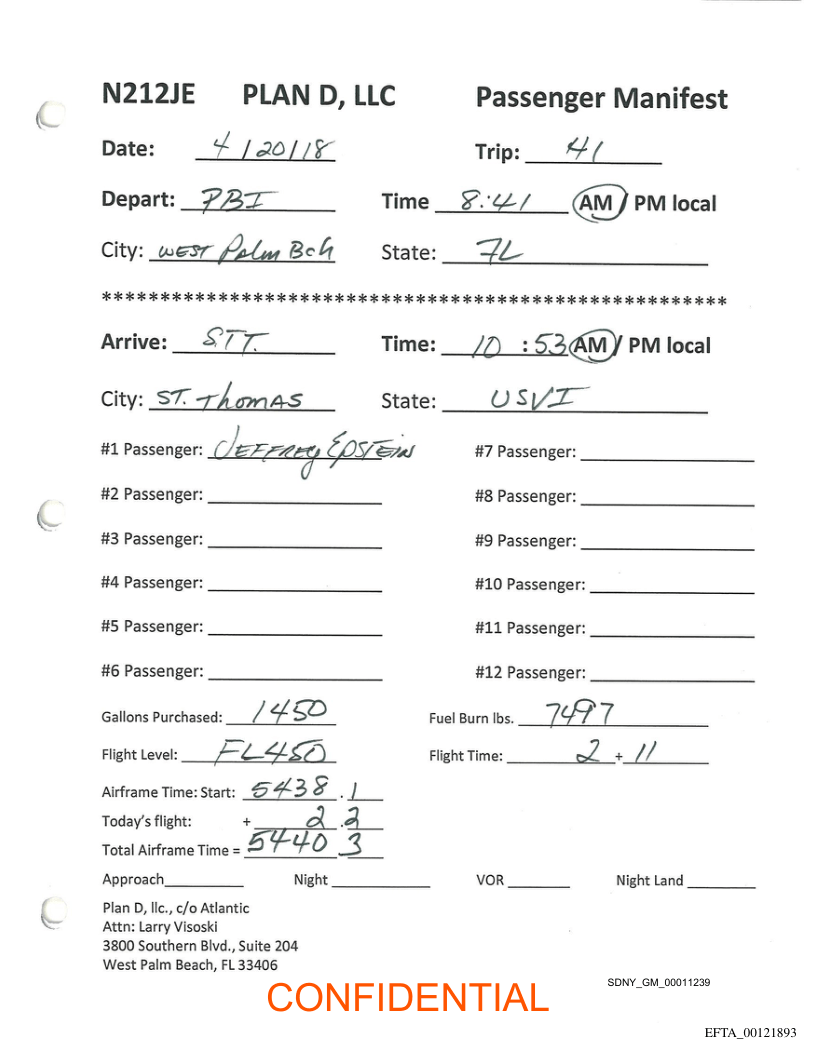 N212JE PLAN D, LLC Passenger Manifest
Date: 4/20/18 Trip: 41
Depart: PBI Time 8:41 AM / PM local
City: WEST Palm Bch State: FL
*****************************************************
Arrive: STT. Time: 10 : 53 AM / PM local
City: ST. Thomas State: USVI
#1 Passenger: JEFFREY EPSTEIN #7 Passenger:
#2 Passenger: #8 Passenger:
#3 Passenger: #9 Passenger:
#4 Passenger: #10 Passenger:
#5 Passenger: #11 Passenger:
#6 Passenger: #12 Passenger:
Gallons Purchased: 1450 Fuel Burn lbs. 7497
Flight Level: FL450 Flight Time: 2 + 11
Airframe Time: Start: 5438 . 1
Today's flight: + 2 . 2
Total Airframe Time = 5440 . 3
Approach Night VOR Night Land
Plan D, llc., c/o Atlantic
Attn: Larry Visoski
3800 Southern Blvd., Suite 204
West Palm Beach, FL 33406
SDNY_GM_00011239
CONFIDENTIAL
EFTA_00121893